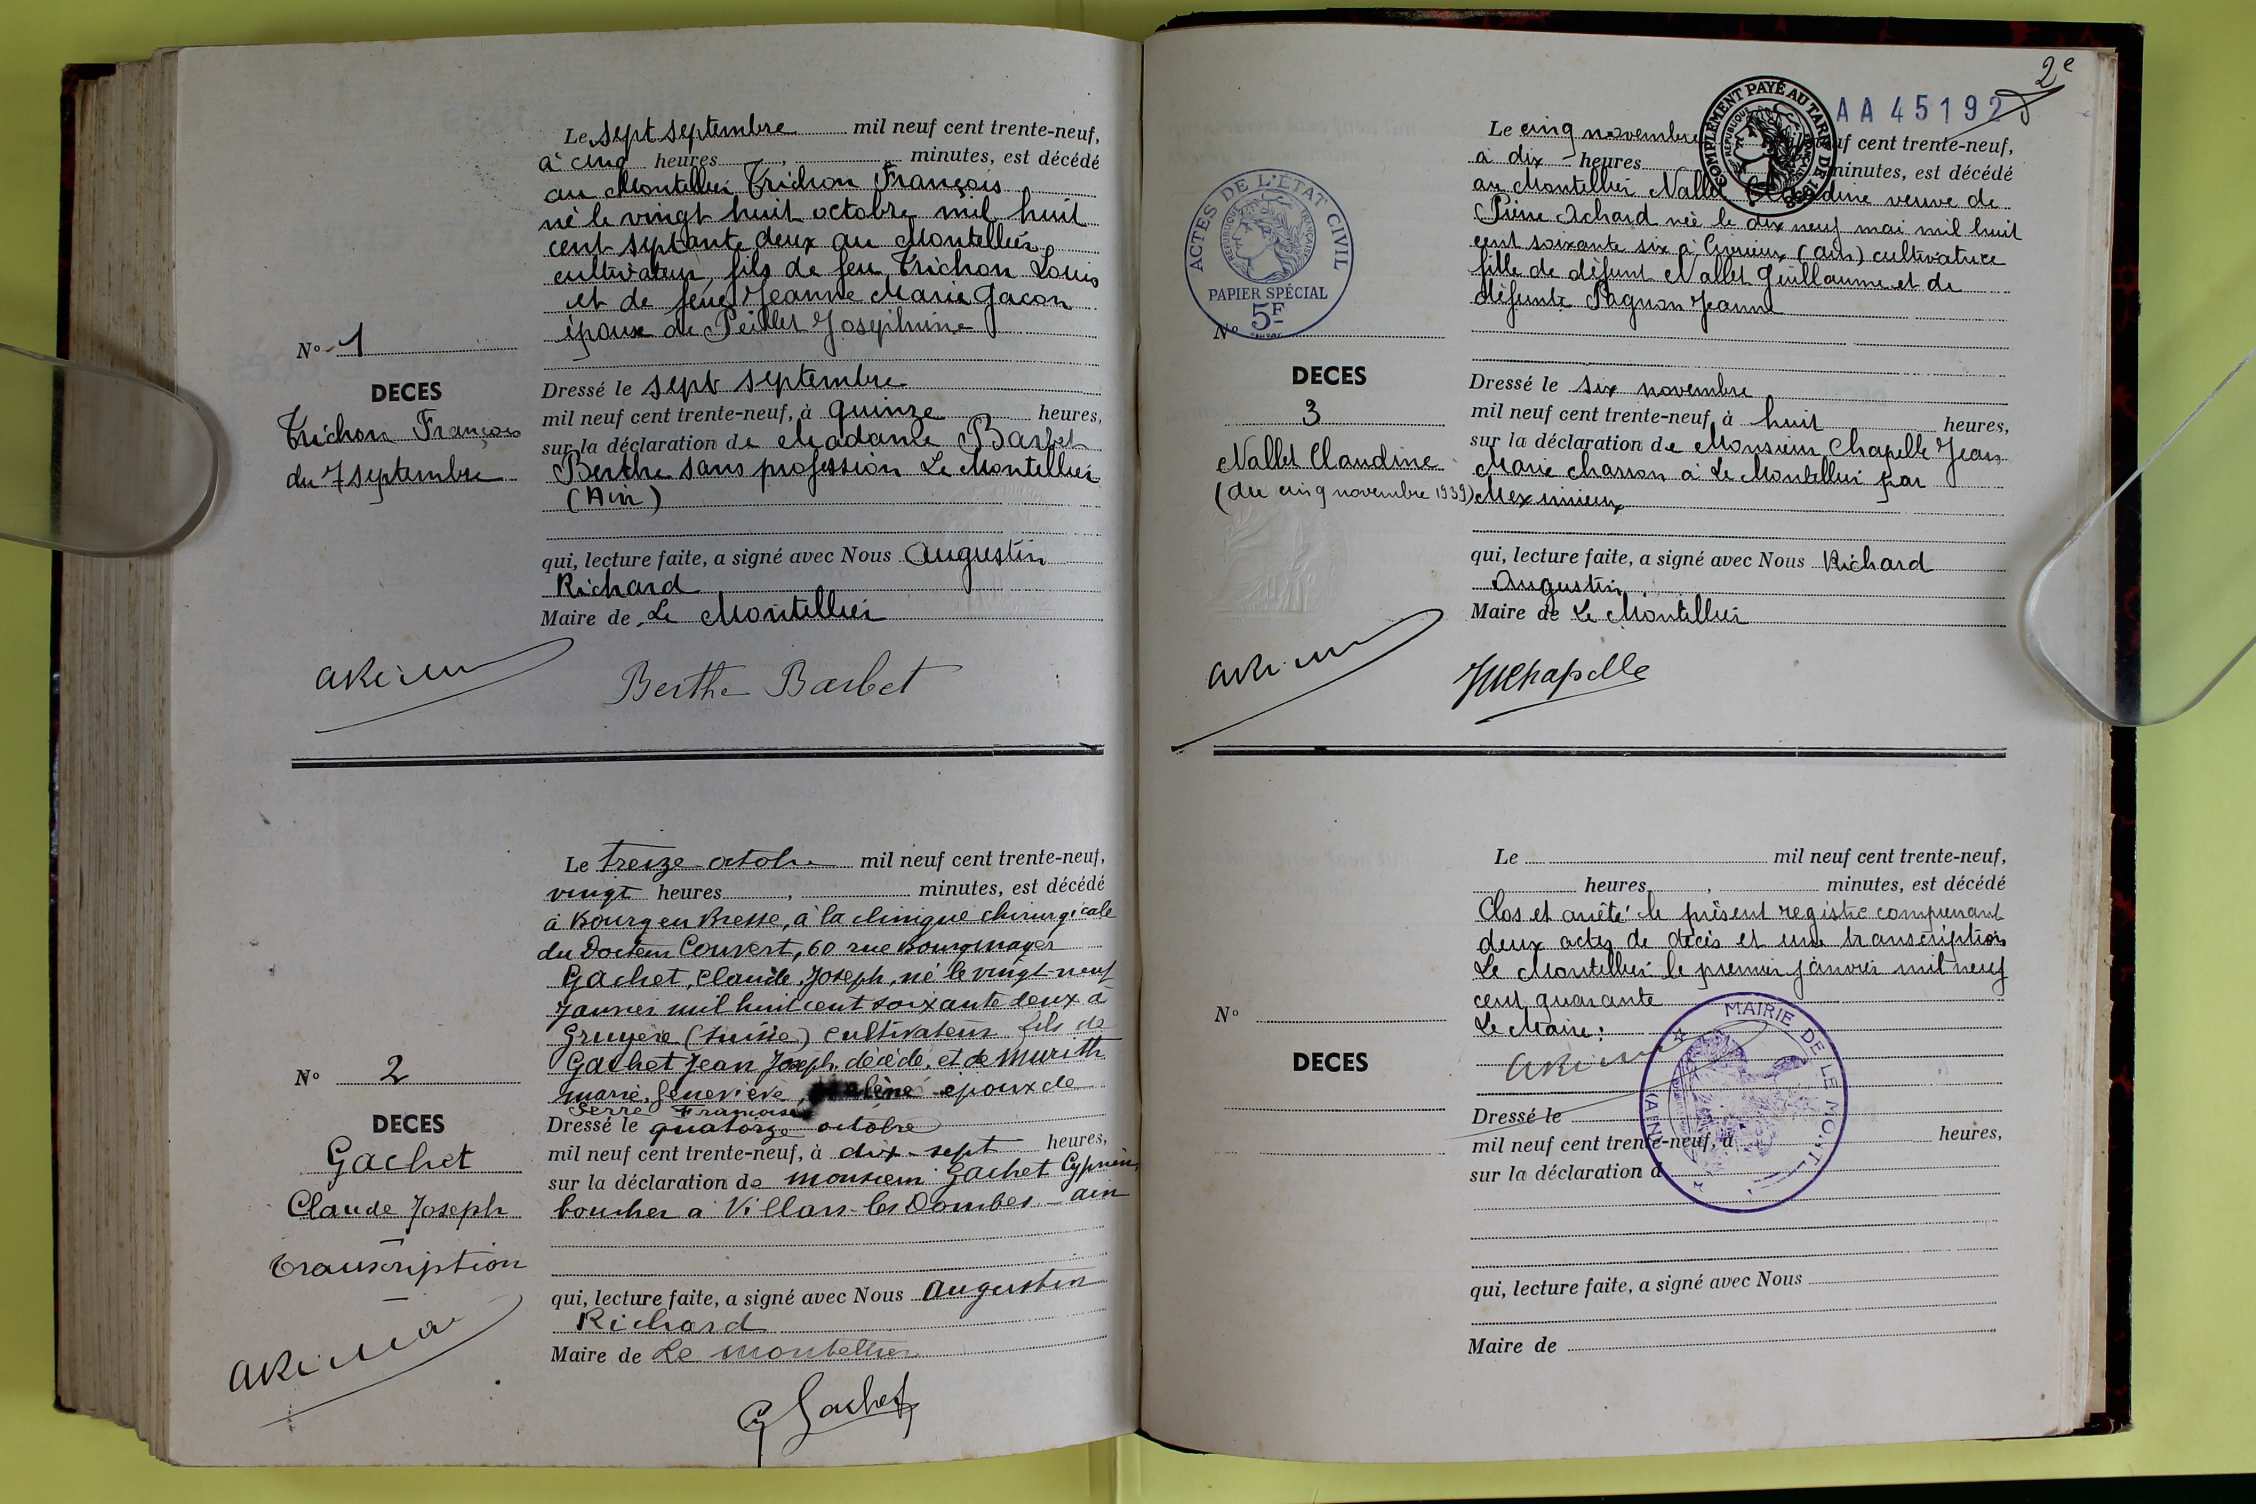 Le sept septembre mil neuf cent trente-neuf,
à cinq heures, minutes, est décédé
au Montellier Trichon François
né le vingt huit octobre mil huit
cent septante deux au Montellier
cultivateur, fils de feu Trichon Louis
et de feue Jeanne Marie Gacon
époux de Peillet Joséphine
No 1
DECES
Trichon François
du 7 septembre
Dressé le sept septembre
mil neuf cent trente-neuf, à quinze heures,
sur la déclaration de Madame Barbet
Berthe sans profession Le Montellier
(Ain)
qui, lecture faite, a signé avec Nous Augustin
Richard
Maire de Le Montellier
Berthe Barbet
Le treize octobre mil neuf cent trente-neuf,
vingt heures, minutes, est décédé
à Bourg en Bresse, à la clinique chirurgicale
du Docteur Couvert, 60 rue Bourgmayer
Gachet, Claude, Joseph, né le vingt-neuf
Janvier mil huit cent soixante deux à
Gruyère (Suisse) cultivateur fils de
Gachet Jean Joseph, décédé, et de Murith
marie, Geneviève, époux de
Serre Françoise
No 2
DECES
Gachet
Claude Joseph
transcription
Dressé le quatorze octobre
mil neuf cent trente-neuf, à dix-sept heures,
sur la déclaration de monsieur Gachet Cyprien
boucher à Villars-les Dombes - ain
qui, lecture faite, a signé avec Nous Augustin
Richard
Maire de Le Montellier
Cy Gachet
2e
AA 45192
COMPLÉMENT PAYÉ AU TARIF DE 1938
REPUBLIQUE FRANÇAISE
Le cinq novembre neuf cent trente-neuf,
à dix heures minutes, est décédé
au Montellier Nallet Claudine veuve de
Pierre Achard née le dix neuf mai mil huit
cent soixante six à Civrieux (ain) cultivatrice
fille de défunt Nallet Guillaume et de
défunte Pagnon Jeanne
ACTES DE L'ETAT CIVIL
REPUBLIQUE FRANÇAISE
PAPIER SPÉCIAL
5F
No
DECES
3
Nallet Claudine
(du cinq novembre 1939)
Dressé le six novembre
mil neuf cent trente-neuf, à huit heures,
sur la déclaration de Monsieur Chapelle Jean
Marie charron à Le Montellier par
Meximieux
qui, lecture faite, a signé avec Nous Richard
Augustin
Maire de Le Montellier
JMChapelle
Le mil neuf cent trente-neuf,
heures, minutes, est décédé
Clos et arrêté le présent registre comprenant
deux actes de décès et une transcription
Le Montellier le premier janvier mil neuf
cent quarante
Le Maire:
No
DECES
MAIRIE DE LE MONT
(AIN)
Dressé le
mil neuf cent trente-neuf, à heures,
sur la déclaration d
qui, lecture faite, a signé avec Nous
Maire de